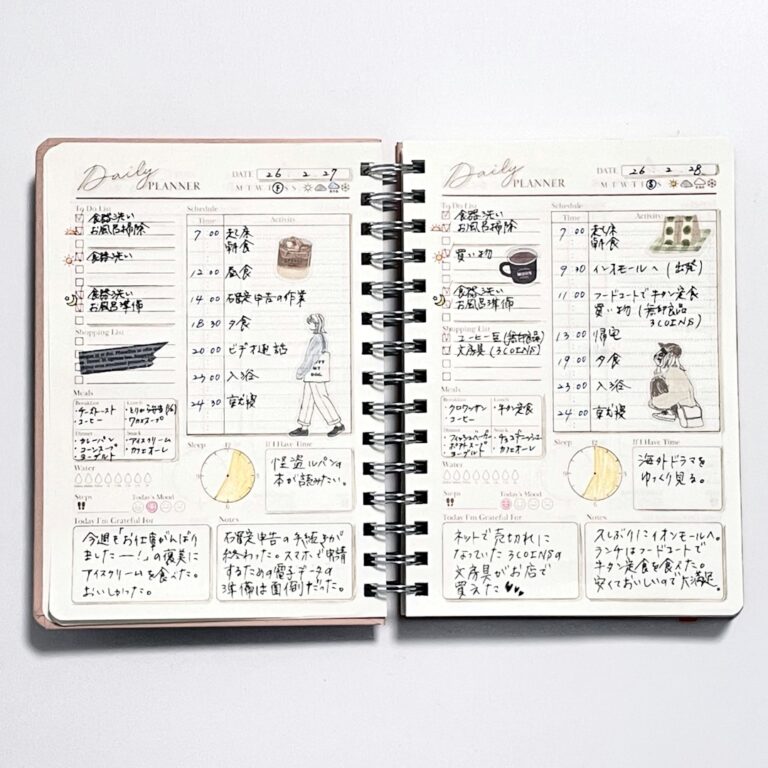 Daily
PLANNER
DATE 26 2 27
M T W T F S S
To Do List
食器洗い
お風呂掃除
食器洗い
食器洗い
お風呂準備
Shopping List
Schedule
Time Activities
7 00 起床
朝食
12 00 昼食
14 00 確定申告の作業
18 30 夕食
20 00 ビデオ通話
23 00 入浴
24 30 就寝
Meals
Breakfast
・チーズトースト
・コーヒー
Lunch
Dinner
・カレーパン
・コーンスープ
・ヨーグルト
Snack
・アイスクリーム
・カフェオーレ
Water
Steps
Today's Mood
Sleep
12
6
If I Have Time
怪盗ルパンの
本が読みたい。
Today I'm Grateful For
今週も「お仕事がんばり
ましたー!」の褒美に
アイスクリームを食べた。
おいしかった。
Notes
確定申告の手続きが
終わった。スマホで申請
するための電子データの
準備は面倒だった。
Daily
PLANNER
DATE 26 2 28
M T W T F S S
To Do List
食器洗い
お風呂掃除
買い物
食器洗い
お風呂準備
Shopping List
コーヒー豆(無印良品)
文房具(3COINS)
Schedule
Time Activities
7 00 起床
朝食
9 30 イオンモールへ(出発)
11 00 フードコートで牛タン定食
買い物(無印良品
3COINS)
13 00 帰宅
19 00 夕食
23 00 入浴
24 00 就寝
Meals
Breakfast
・クロワッサン
・コーヒー
Lunch
・牛タン定食
Dinner
・フィッシュバーガー
・ヨーグルト
Snack
・カフェオーレ
Water
Steps
Today's Mood
Sleep
12
6
If I Have Time
海外ドラマを
ゆっくり見る。
Today I'm Grateful For
ネットで売切れに
なっていた3COINSの
文房具がお店で
買えた♥♥
Notes
久しぶりにイオンモールへ。
ランチはフードコートで
牛タン定食を食べた。
安くておいしいので大満足。